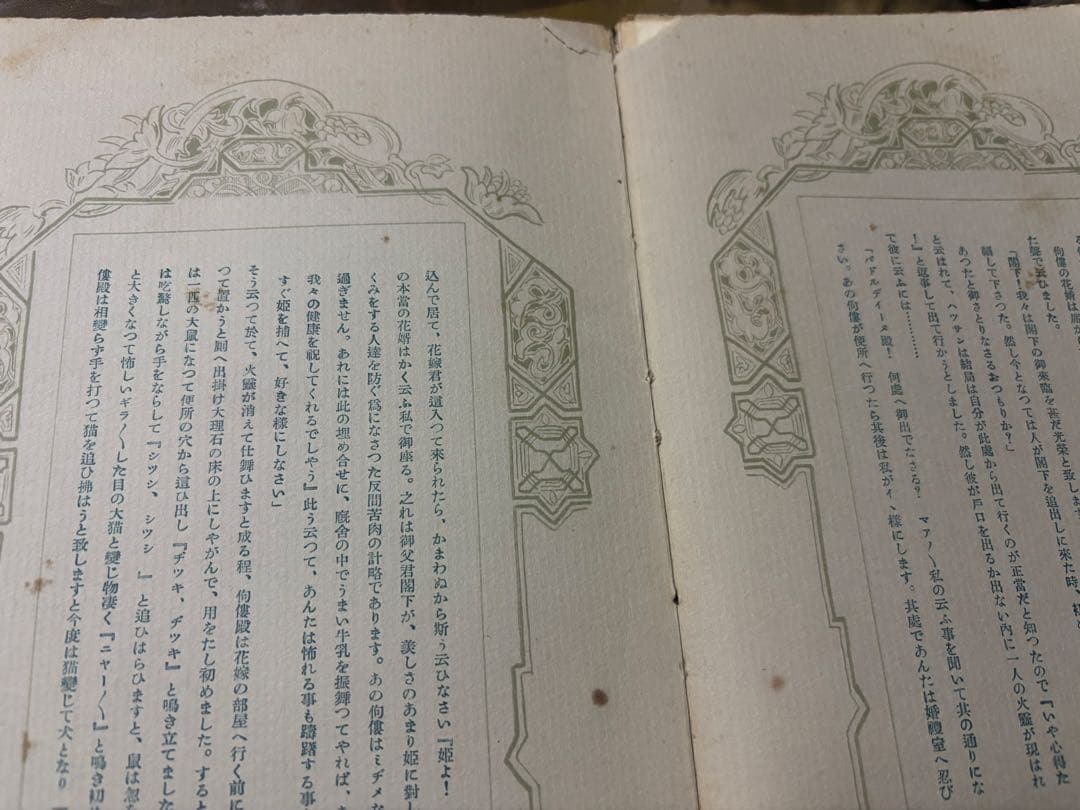 佝僂の花婿は
た聲で云ひました。
『閣下！我々は閣下の御來臨を甚だ光榮と致します
願して下さつた。然し今となつては人が閣下を追出しに來た時、
あつたと御さとりなさるおつもりか？』
と云はれて、ヘツサンは結局は自分が此處から出て行くのが正當だと知つたので『いや心得た
！』と返事して出て行かうとしました。然し彼が戸口を出るか出ない内に一人の火靈が現はれ
て彼に云ふには………
『バドルディーヌ殿！何處へ御出でなさる？マア〳〵私の云ふ事を聞いて其の通りにな
さい。あの佝僂が便所へ行つたら其後は私がイヽ樣にします。其處であんたは婚禮室へ忍び
込んで居て、花嫁君が這入つて來られたら、かまわぬから斯う云ひなさい『姬よ！
の本當の花婿はかく云ふ私で御座る。之れは御父君閣下が、美しさのあまり姬に對し
くみをする人達を防ぐ爲になさつた反間苦肉の計略であります。あの佝僂はミヂメな
過ぎません。あれには此の埋め合せに、廐舍の中でうまい牛乳を振舞つてやれば、
我々の健康を祝してくれるでしやう』此う云つて、あんたは怖れる事も躊躇する事
すぐ姬を捕へて、好きな樣にしなさい」
そう云つて於て、火靈が消えて仕舞ひますと成る程、佝僂殿は花嫁の部屋へ行く前に
つて置かうと厠へ出掛け大理石の床の上にしやがんで、用をたし初めました。すると
は一匹の大鼠になつて便所の穴から這ひ出し『ヂツキ、ヂツキ』と鳴き立てました
は吃驚しながら手をならして『シツシ、シツシ』と追ひはらひますと、鼠は忽
と大きくなつて怖しいギラ〳〵した目の大猫と變じ物凄く『ニャー〳〵』と鳴き初め
僂殿は相變らず手を打つて猫を追ひ拂はうと致しますと今度は猫變じて犬となり